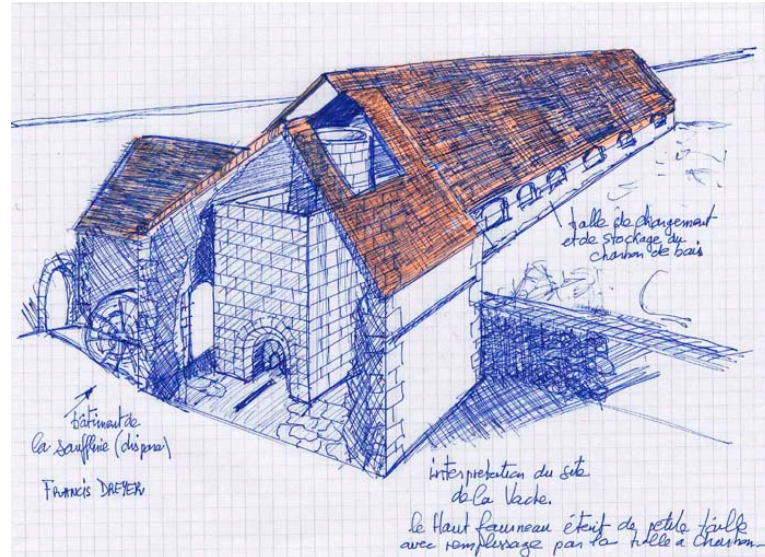 halle de chargement
et de stockage du
charbon de bois
bâtiment de
la soufflerie (disparu)
FRANCIS DREYER
interpretation du site
de la Vache.
le Haut fourneau était de petite taille
avec remplissage par la halle a charbon